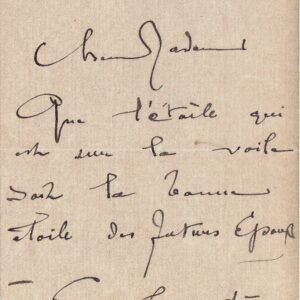 Chère Madame
Que l'étoile qui
est sur la voile
soit la bonne
étoile des futurs Epoux